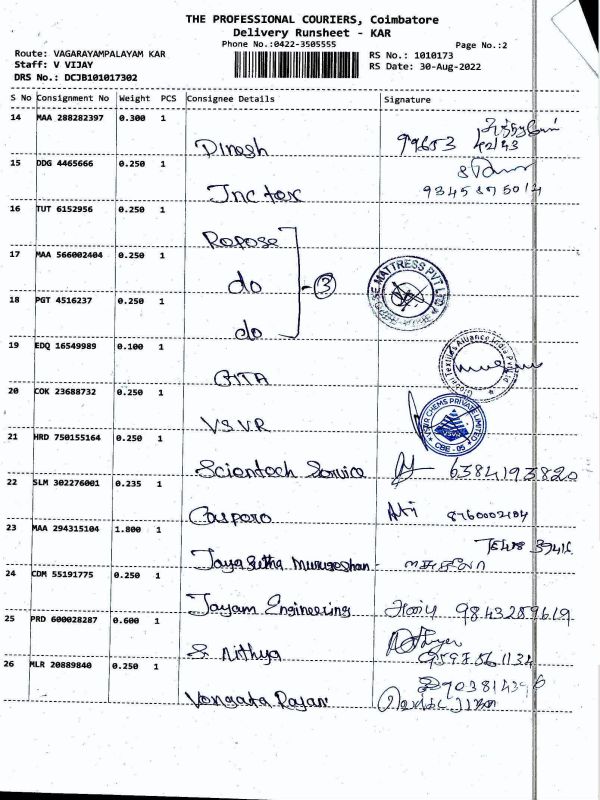 THE PROFESSIONAL COURIERS, Coimbatore
Delivery Runsheet - KAR
Phone No.:0422-3505555
Page No.:2
Route: VAGARAYAMPALAYAM KAR
Staff: V VIJAY
DRS No.: DCJB101017302
RS No.: 1010173
RS Date: 30-Aug-2022
S No Consignment No Weight PCS Consignee Details Signature
14 MAA 288282397 0.300 1
Dinesh
15 DDG 4465666 0.250 1
Inc tax
16 TUT 6152956 0.250 1
Repose
17 MAA 566002404 0.250 1
do 3
18 PGT 4516237 0.250 1
do
MATTRESS PVT LTD
19 EDQ 16549989 0.100 1
20 COK 23688732 0.250 1
VSVR
VSVR CHEMS PRIVATE LIMITED
CBE - 05
21 HRD 750155164 0.250 1
Scientech Service 6384193820
22 SLM 302276001 0.235 1
8760002104
23 MAA 294315104 1.800 1
Jaya Sutha Murugeshan
24 CDM 55191775 0.250 1
Jayam Engineering 9843289619
25 PRD 600028287 0.600 1
S. Nithya
26 MLR 20889840 0.250 1
Vengata Rajan